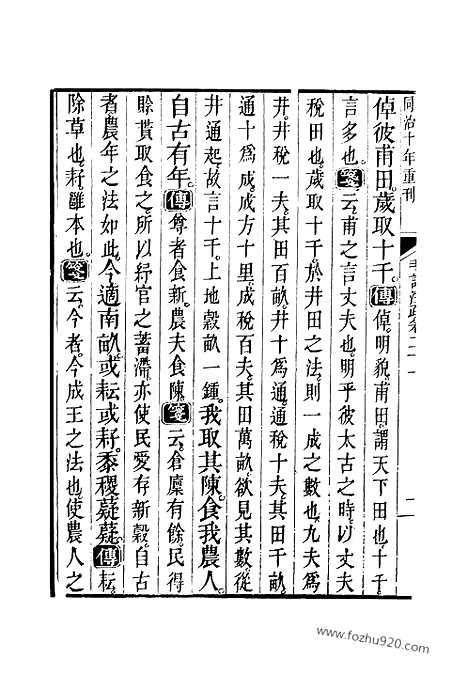 同治十年重刊
倬彼甫田歲取十千傳倬明貌甫田謂天下田也十千
言多也箋云甫之言丈夫也明乎彼太古之時以丈夫
稅田也歲取十千於井田之法則一成之數也九夫爲
井井稅一夫其田百畝井十爲通通稅十夫其田千畝
通十爲成成方十里成稅百夫其田萬畝欲見其數從
井通起故言十千上地穀畝一鍾我取其陳食我農人
自古有年傳尊者食新農夫食陳箋云倉廩有餘民得
賒貰取食之所以紓官之蓄滯亦使民愛存新穀自古
者農年之法如此今適南畝或耘或耔黍稷薿薿傳耘
除草也耔雝本也箋云今者今成王之法也使農人之
www.fozhu920.com